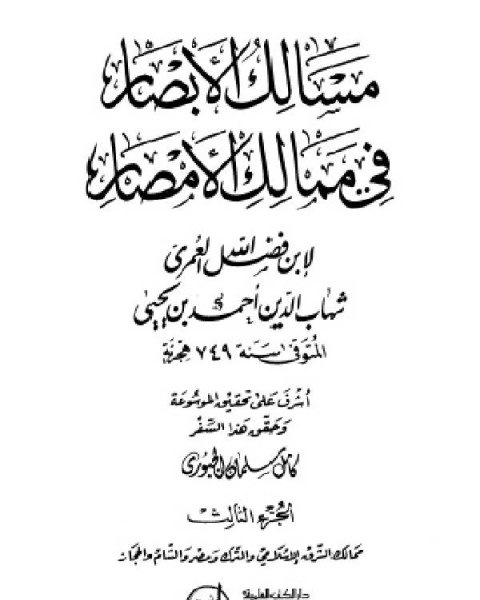 مَسَالِكُ الأَبْصَار
فِي مَمَالِكِ الأَمْصَار
لابن فضل الله العمري
شهاب الدين أحمد بن يحيى
المتوفى سنة ٧٤٩ هجرية
أشرف على تحقيق الموسوعة
وحقق هذا السفر
كامل سلمان الجبوري
الجزء الثالث
ممالك الشرق الإسلامي والترك ومصر والشام والحجاز
دار الكتب العلمية